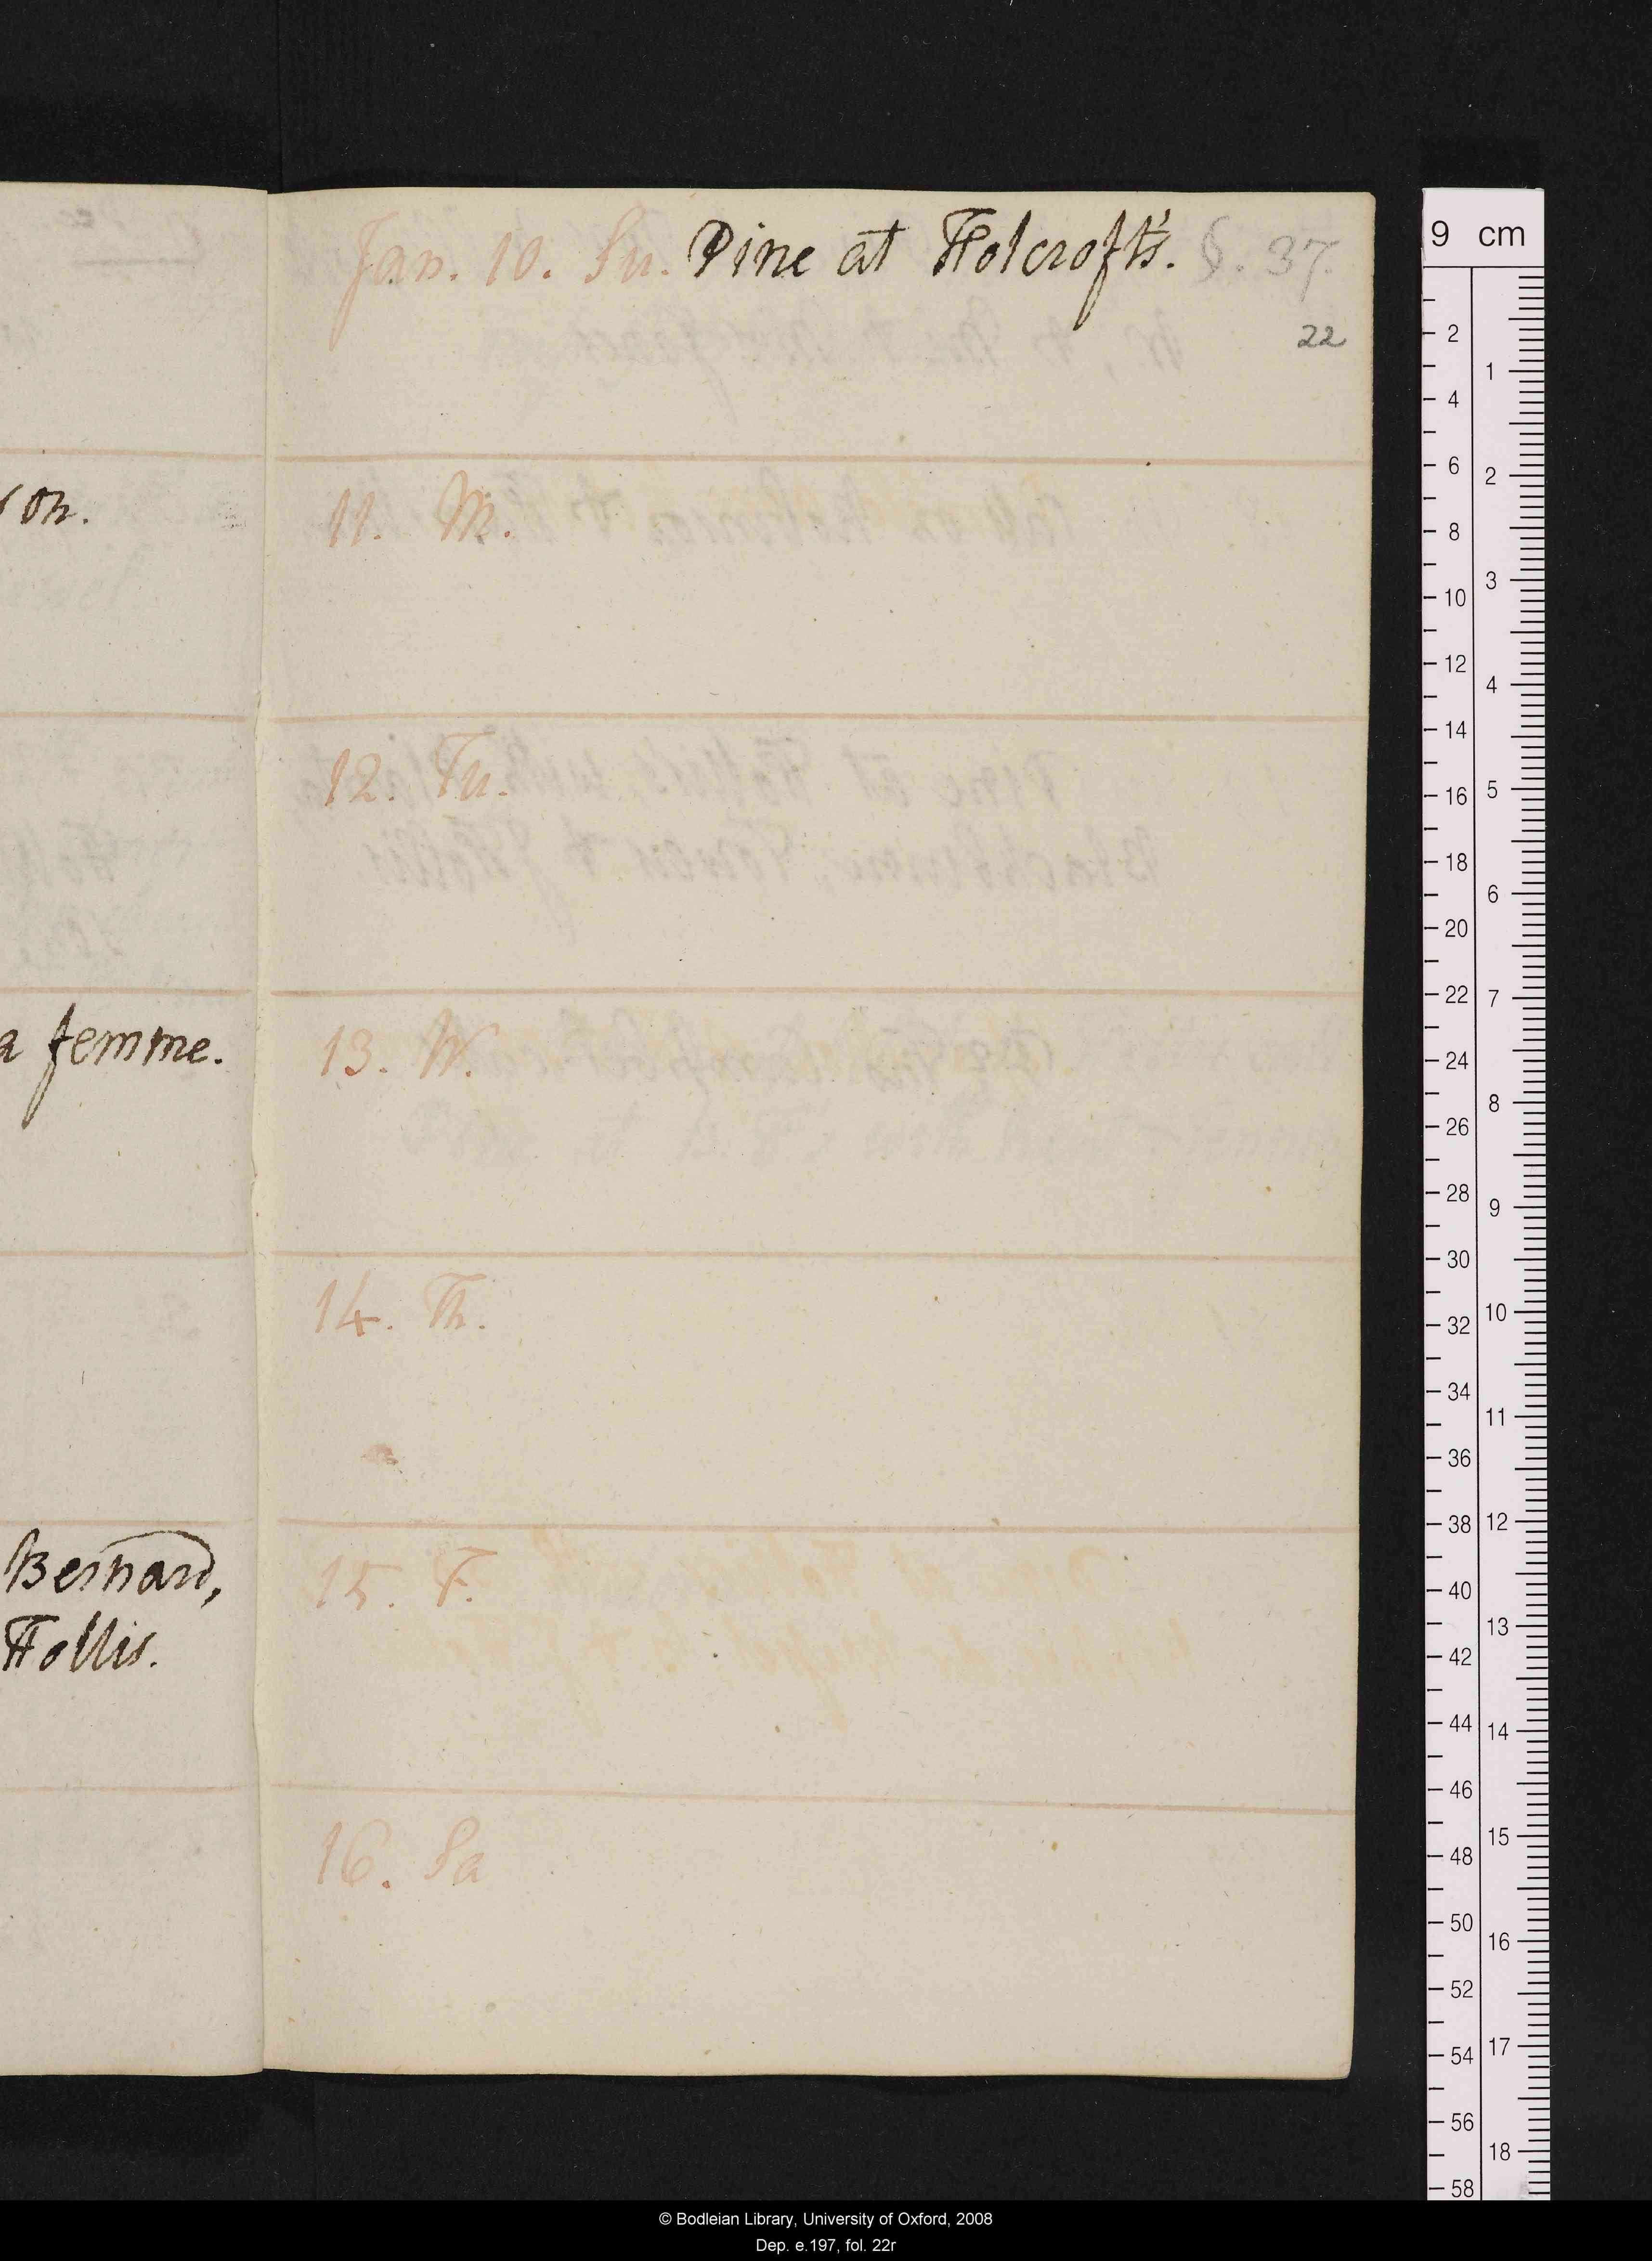 Jan. 10. Su. Dine at Holcroft's. §. 37.
22
11. M.
12. Tu.
13. W.
14. Th.
15. F.
16. Sa
on.
a femme.
Bernard,
Hollis.
9 cm
2
4
6
8
10
12
14
16
18
20
22
24
26
28
30
32
34
36
38
40
42
44
46
48
50
52
54
56
58
1
2
3
4
5
6
7
8
9
10
11
12
13
14
15
16
17
18
© Bodleian Library, University of Oxford, 2008
Dep. e.197, fol. 22r